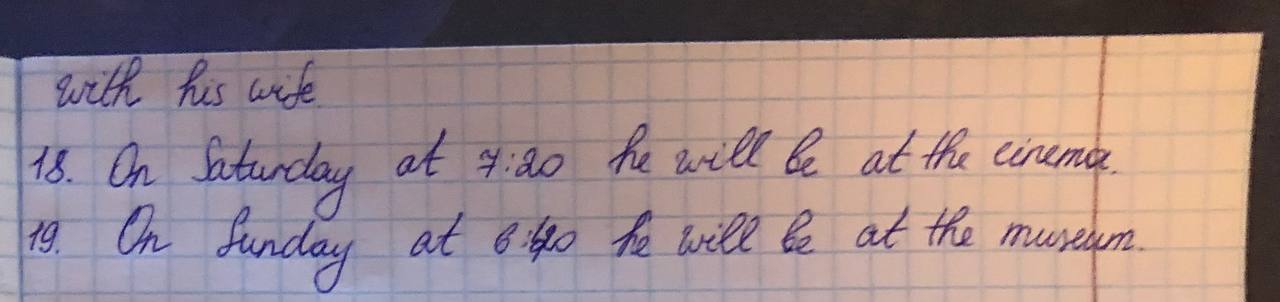 with his wife
18. On Saturday at 7:20 he will be at the cinema.
19. On Sunday at 6:40 he will be at the museum.